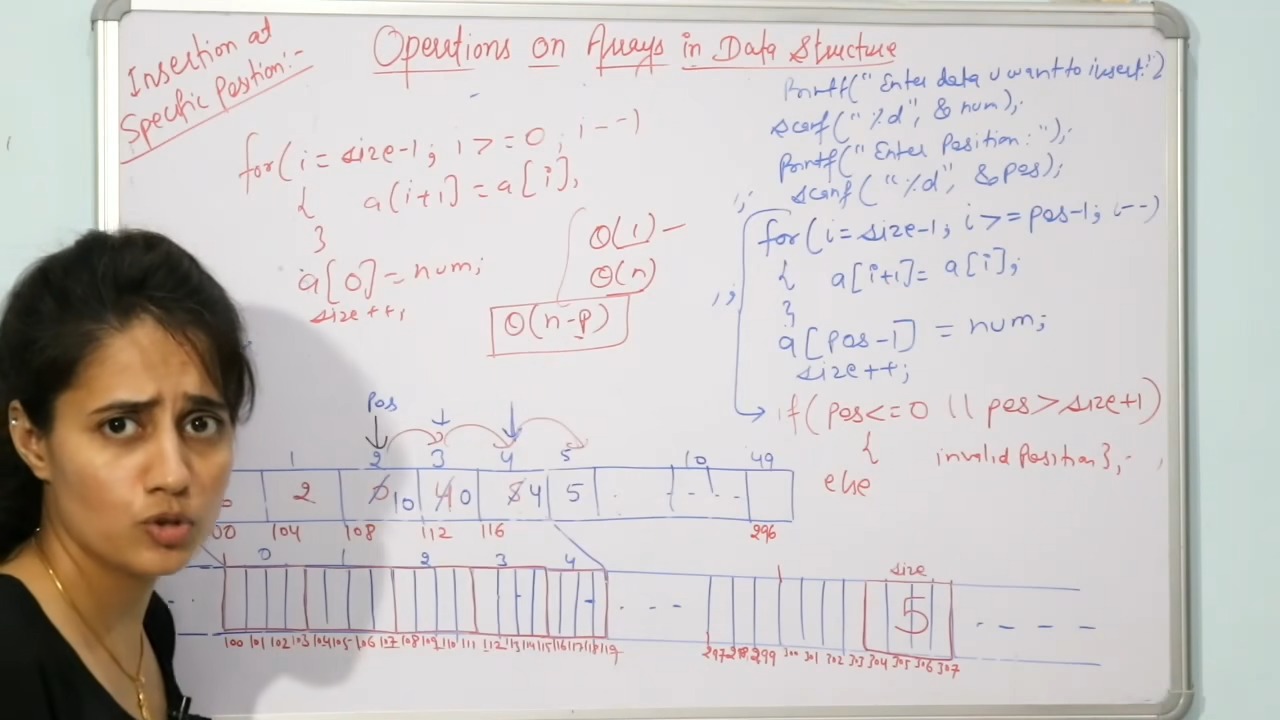 Insertion at
Specific Position:-
Operations on Arrays in Data Structure
for(i=size-1; i>=0; i--)
{ a(i+1]=a[i],
}
a[0]=num;
size++;
O(1)-
O(n)
O(n-p)
Printf("Enter data u want to insert:")
scanf("%d", & num);
Printf("Enter Position:");
scanf("%d", &pos);
for(i=size-1; i>=pos-1; i--)
{ a[i+1]= a[i];
}
a[pos-1] = num;
size++;
if(pos<=0 || pos>size+1)
{ invalid Position},
else
Pos
1 2 3 4 5 10 49
2 6 10 4 0 8 4 5 . - - . .
00 104 108 112 116 296
0 1 2 3 4 size
5
100 101 102 103 104 105 106 107 108 109 110 111 112 113 114 115 116 117 118 119 297 298 299 300 301 302 303 304 305 306 307